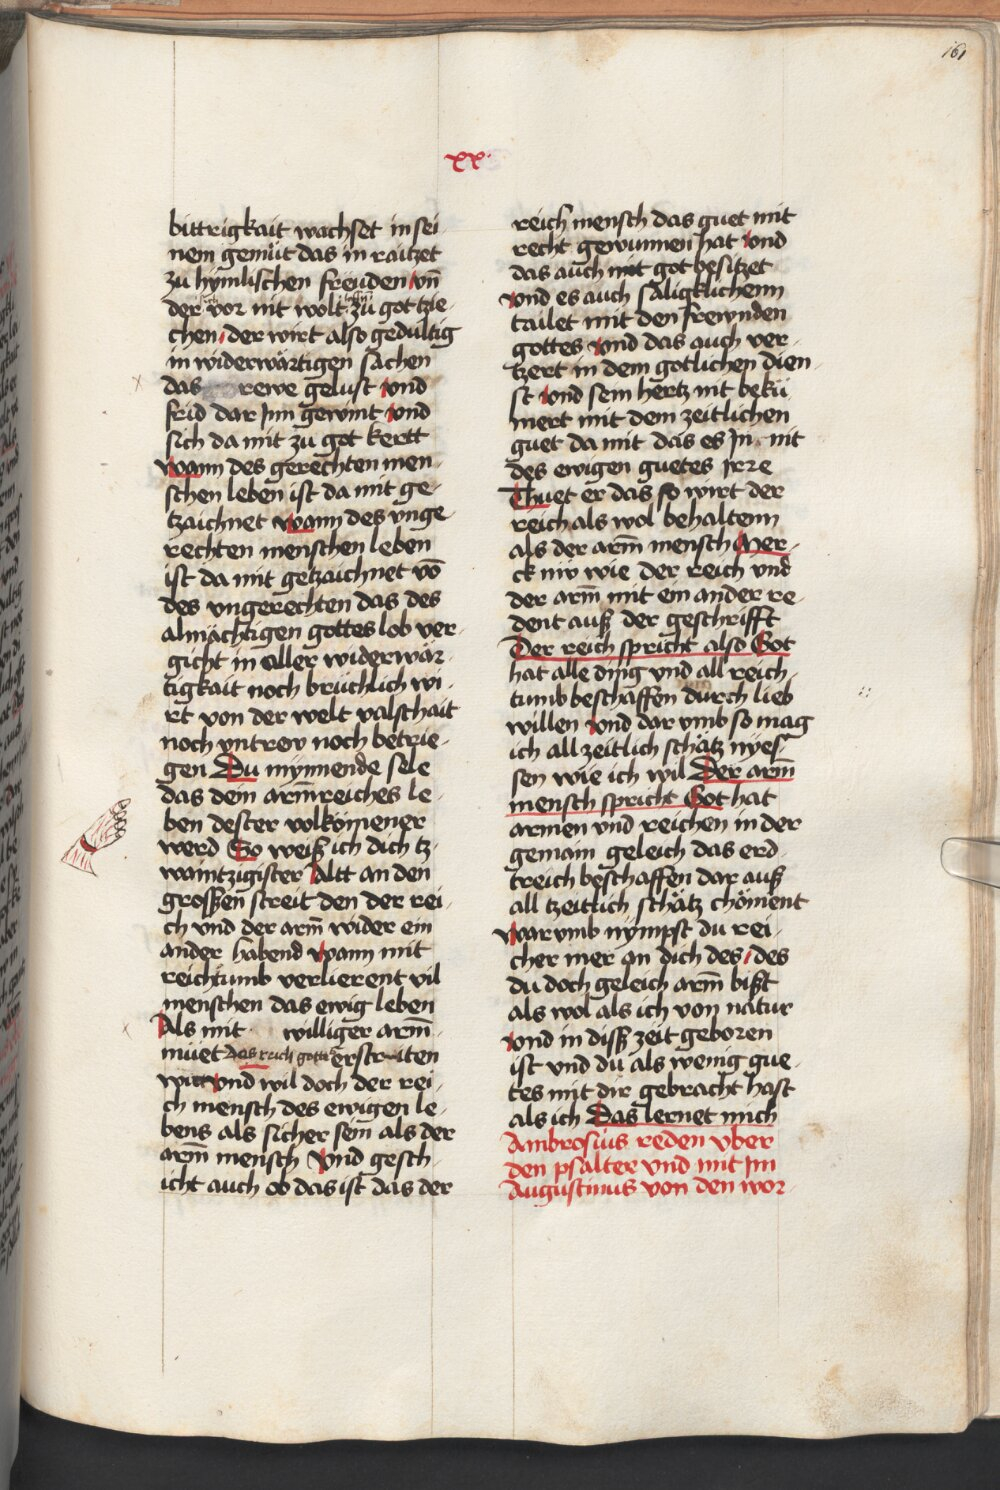 161
xx.
bittrigkait wachset in sei
nem gemüt das in raitzet
zu hymlischen freuden vn̄
der vor nit wolt zu got tzie-
chen, der wirt also gedultig
in widerwärtigen sachen
das rewe gelust vnd
frid dar Inn gewint vnd
sich da mit zu got kertt
wann des gerechten men-
schen leben ist da mit ge-
tzaichnet wann des vnge-
rechten menschen leben
ist da mit getzaichnet vō
des vngerechten das des
almächtigen gottes lob ver-
gicht in aller widerwär-
tigkait noch brüchlich wi-
rt von der welt valschait
noch vntrew noch betrie-
gen Du mynnende sele
das dein armreiches le-
ben dester volkömener
werd So weiß ich dich tz-
waintzigister Altt an den
grossen streit den der rei-
ch vnd der arm̄ wider ein
ander habend wann mit
reichtumb verlierent vil
menschen das ewig leben
Als mit williger arm̄-
müet das reich gottes erstriten
wirt vnd wil doch der rei-
ch mensch des ewigen le-
bens als sicher sein als der
arm̄ mensch Vnd gesch-
icht auch ob das ist das der
reich mensch das guet mit
recht gewunnen hat vnd
das auch mit got besitzet
vnd es auch säligklichenn
tailet mit den frewnden
gottes vnd das auch ver-
tzert in dem gotlichen dien-
st vnd sein hertz nit bekü
mert mit dem zeitlichen
guet da mit das es In nit
des ewigen guetes irre
Thuet er das so wirt der
reich als wol behaltenn
als der arm̄ mensch Mer-
ck nw wie der reich vnd
der arm̄ mit ein ander re-
dent auß der geschrifft
Der reich spricht also Got
hat alle ding vnd all reich-
tumb beschaffen durch lieb
willen vnd dar vmb so mag
ich all zeitlich schätz nyes-
sen wie ich wil Der arm̄
mensch spricht Got hat
armen vnd reichen in der
gemain geleich das erd-
treich beschaffen dar auß
all tzeitlich schätz chöment
Warvmb nympst du rei-
cher mer an dich des, des
du doch geleich arm̄ bist
als wol als ich von natur
vnd in disß zeit geboren
ist vnd du als wenig gue-
tes mit dir gebracht hast
als ich Das lernet mich
Ambrosius reden vber
den psalter vnd mit Im
Augustinus von den wor-